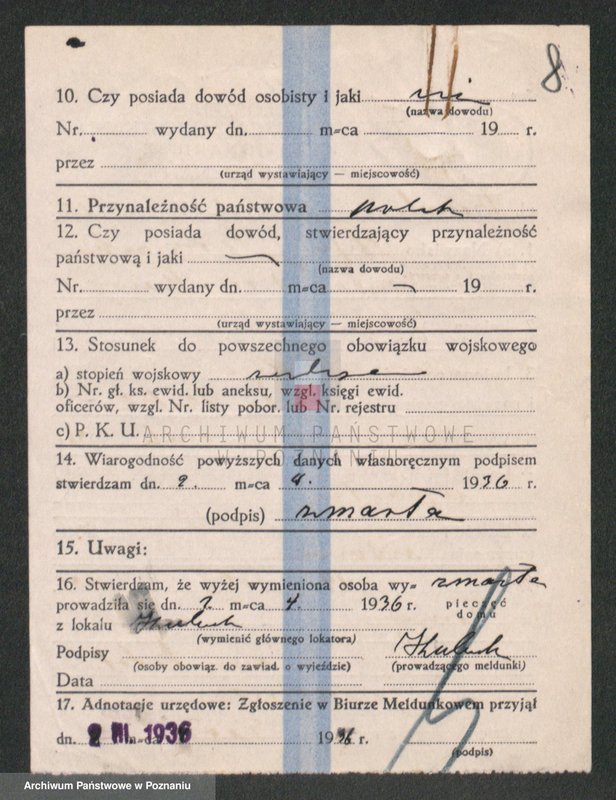 8
10. Czy posiada dowód osobisty i jaki
(nazwa dowodu)
Nr. wydany dn. m=ca 19 r.
przez
(urząd wystawiający — miejscowość)
11. Przynależność państwowa polska
12. Czy posiada dowód, stwierdzający przynależność
państwową i jaki
(nazwa dowodu)
Nr. wydany dn. m=ca 19 r.
przez
(urząd wystawiający — miejscowość)
13. Stosunek do powszechnego obowiązku wojskowego
a) stopień wojskowy
b) Nr. gł. ks. ewid. lub aneksu, wzgl. księgi ewid.
oficerów, wzgl. Nr. listy pobor. lub Nr. rejestru
c) P. K. U.
ARCHIWUM PAŃSTWOWE
W POZNANIU
14. Wiarogodność powyższych danych własnoręcznym podpisem
stwierdzam dn. m=ca 1936 r.
(podpis) zmarła
15. Uwagi:
16. Stwierdzam, że wyżej wymieniona osoba wy= zmarła
prowadziła się dn. m=ca 4. 1936 r. pieczęć
domu
z lokalu
(wymienić głównego lokatora)
Podpisy
(osoby obowiąz. do zawiad. o wyjeździe) (prowadzącego meldunki)
Data
17. Adnotacje urzędowe: Zgłoszenie w Biurze Meldunkowem przyjął
dn. m=ca 1936 r.
(podpis)
Archiwum Państwowe w Poznaniu